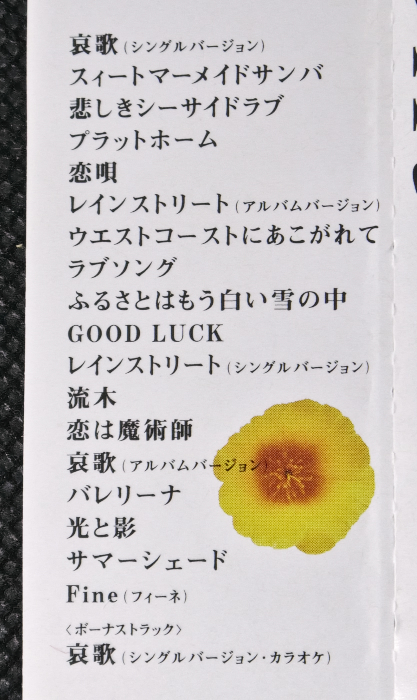 哀歌(シングルバージョン)
スィートマーメイドサンバ
悲しきシーサイドラブ
プラットホーム
恋唄
レインストリート(アルバムバージョン)
ウエストコーストにあこがれて
ラブソング
ふるさとはもう白い雪の中
GOOD LUCK
レインストリート(シングルバージョン)
流木
恋は魔術師
哀歌(アルバムバージョン)
バレリーナ
光と影
サマーシェード
Fine(フィーネ)
〈ボーナストラック〉
哀歌(シングルバージョン・カラオケ)